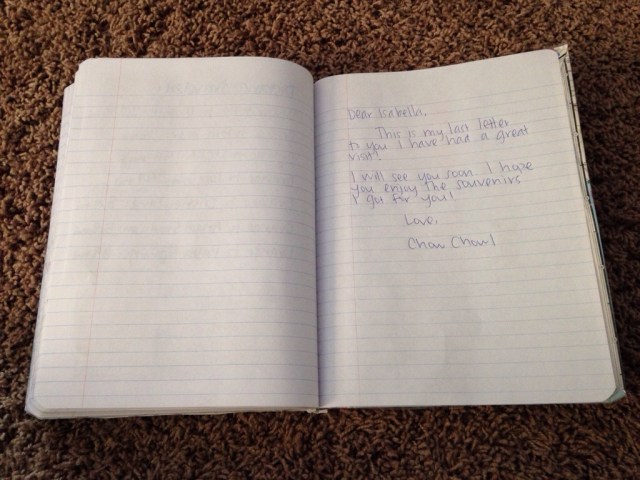 Dear Isabella,
This is my last letter
to you I have had a great
visit!
I will see you soon. I hope
you enjoy the souvenirs
I got for you!
Love,
Chou Chou!